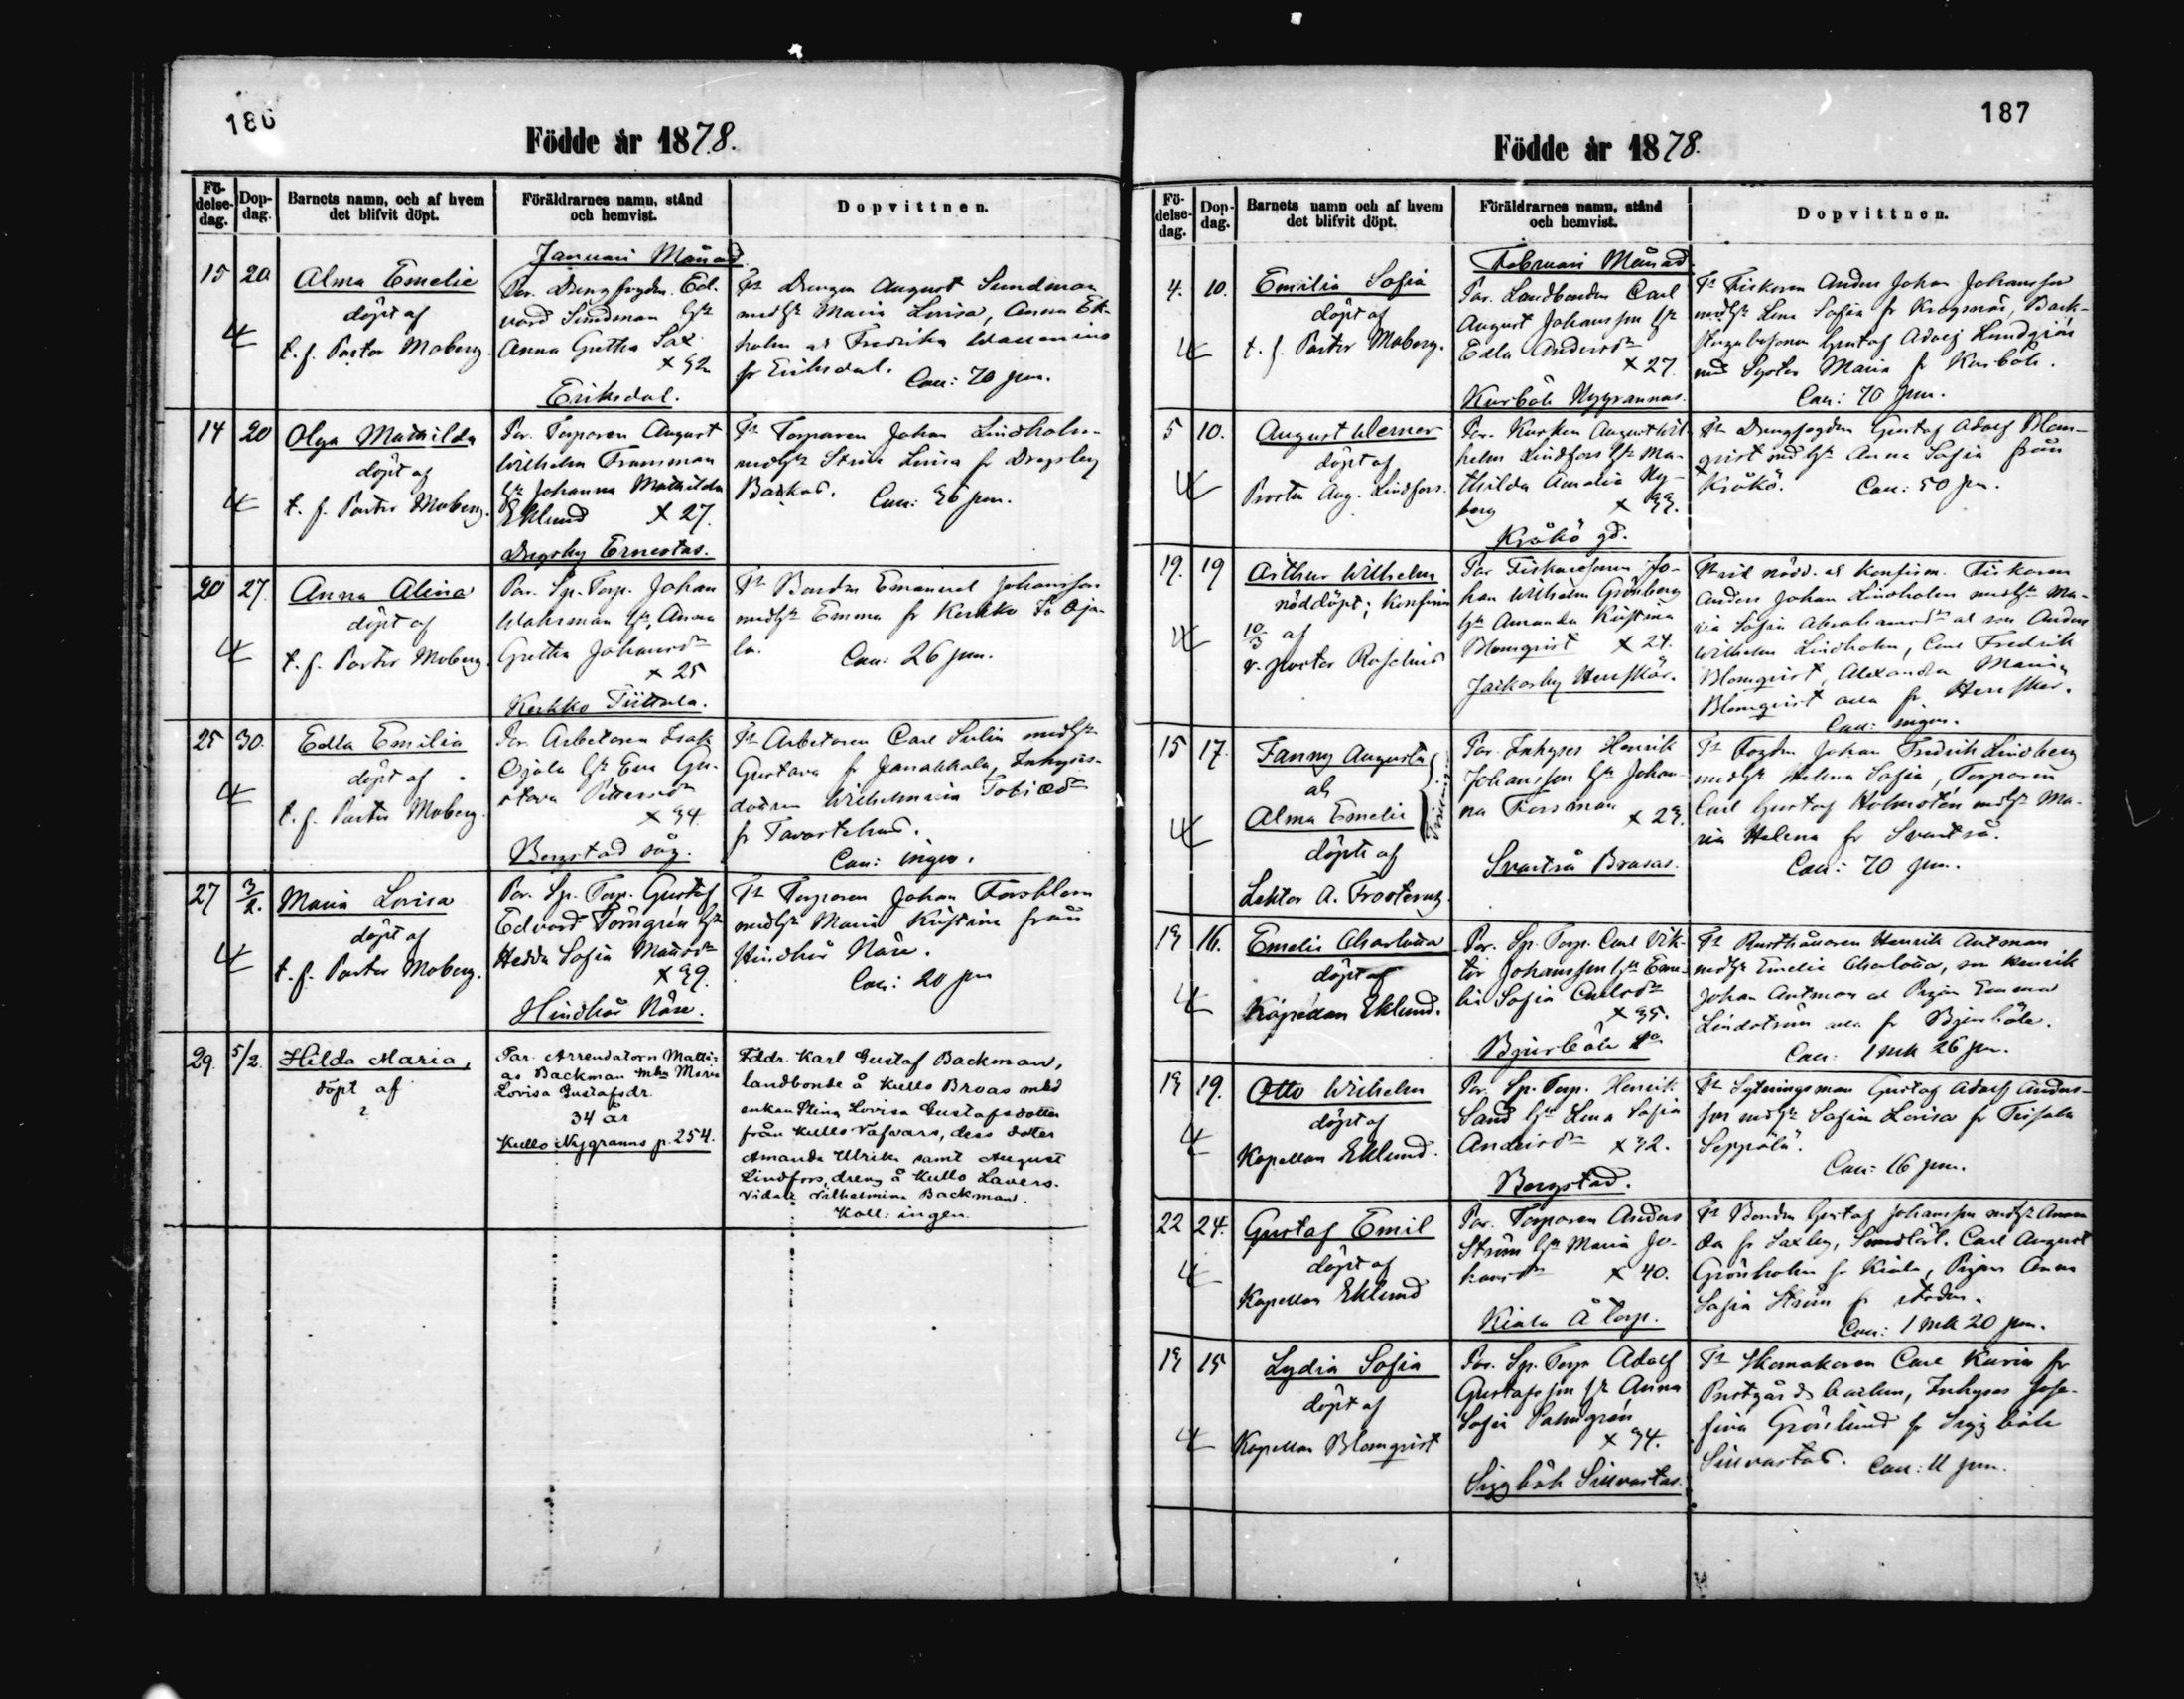 186
Födde år 1878.
Fö-
delse-
dag.
Dop-
dag.
Barnets namn, och af hvem
det blifvit döpt.
Föräldrarnes namn, stånd
och hemvist.
Dopvittnen.
Januari Månad.
15 20
Alma Emelie
döpt af
t. f. Pastor Moberg.
4
Par. Drengfogden Ed-
vard Sundman
Anna Gretha Sax
Eriksdal.
Drengen August Sundman
Maria Lovisa, Anna Ek-
holm Fredrika
fr Eriksdal.
Coll: 70 pen.
14 20
Olga Mathilda
döpt af
t. f. Pastor Moberg.
4
Par. Torparen August
Wilhelm Fransman
Johanna Mathilda
Eklund x 27.
Drägsby Ernestas.
Torparen Johan Lindholm
Stina Lovisa fr Drägsby
Backas. Coll: 36 pen.
20 27.
Anna Alina
döpt af
t. f. Pastor Moberg.
4
Par. Sp. Torp. Johan
Wahrman Anna
Gretha Johansdr
x 25
Kerkko Tiittala.
Bonden Emanuel Johansson
Emma fr Kerkko
la. Coll: 26 pen.
25 30.
Edla Emilia
döpt af
t. f. Pastor Moberg.
4
Par. Arbetaren Isak
Ojala Eva Gu-
stava
x 34.
Bergstad såg.
Arbetaren Carl
Gustava fr Janakkala, Inhyses-
Wilhelmina
fr Tavastehus.
Coll: ingen.
27 3/2.
Maria Lovisa
döpt af
t. f. Pastor Moberg.
4
Par. Sp. Torp. Gustaf
Edvard Törngrén
Hedda Sofia
x 39.
Hindhår Näse.
Torparen Johan Forsblom
Maria Kristina från
Hindhår Näse.
Coll: 20 pen
29. 5/2.
Hilda Maria,
döpt af
?
Par. Arrendatorn Matti-
as Backman mhu Maria
Lovisa Gustafsdr.
34 år
Kullo Nygranns p. 254.
Fddr. Karl Gustaf Backman,
landbonde å Kullo Broas med
enkan Stina Lovisa Gustafsdotter
från Kullo Tafvars, dess dotter
Amanda Ulrika samt August
Lindfors, dreng å Kullo Lavers.
Vidare Vilhelmina Backman.
Koll: ingen.
187
Födde år 1878.
Fö-
delse-
dag.
Dop-
dag.
Barnets namn och af hvem
det blifvit döpt.
Föräldrarnes namn, stånd
och hemvist.
Dopvittnen.
Februari Månad.
4. 10.
Emilia Sofia
döpt af
t. f. Pastor Moberg.
4
Par. Landbonden Carl
August Johansson
Edla Andersdr
x 27.
Kurböle Nygrannas.
Fiskaren Anders Johan Johansson
Lena Sofia fr Krogsnäs, Back-
Gustaf Adolf Lundqvist
med Syster Maria fr Kurböle.
Coll: 70 pen.
5 10.
August Werner
döpt af
Prosten Aug. Lindfors.
4
Par. Kusken August Wil-
helm Lindfors Ma-
thilda Amalia Ny-
berg x 33.
Kråkö gd.
Drengfogden Gustaf Adolf Blom-
qvist Anna Sofia från
Kråkö. Coll: 50 pen.
19. 19
Arthur Wilhelm
nöddöpt; konfirm
10/3 af
v. pastor Roschius
4
Par. Fiskaresonen Jo-
han Wilhelm Grönberg
Amanda Kristina
Blomqvist x 24.
Jackarby Herrskär.
vid nödd. konfirm. Fiskaren
Anders Johan Lindholm Ma-
ria Sofia Abrahamsdr son Anders
Wilhelm Lindholm, Carl Fredrik
Blomqvist, Alexandra Maria
Blomqvist alla fr Herrskär.
Coll: ingen.
15 17.
Fanny Augusta
och
Alma Emelie
döpte af
Lektor A. Frosterus.
4
Par. Inhyses Henrik
Johansson Johan-
na Forsman x 23.
Svartså Brasas.
Fogden Johan Fredrik Lindberg
Helena Sofia, Torparen
Carl Gustaf Holmstén Ma-
ria Helena fr Svartså.
Coll: 70 pen.
13 16.
Emelie Charlotta
döpt af
Kapellan Eklund.
4
Par. Sp. Torp. Carl Vik-
tor Johansson Eme-
lie Sofia Carlsdr
x 35.
Bjurböle
Rusthållaren Henrik Antman
Emelie Charlotta, son Henrik
Johan Antman Pigan Emma
Lindström alla fr Bjurböle.
Coll: 1 mk 26 pen.
13 19.
Otto Wilhelm
döpt af
Kapellan Eklund.
4
Par. Sp. Torp. Henrik
Sand Lena Sofia
Andersdr x 32.
Bergstad.
Sytningsman Gustaf Adolf Anders-
son Sofia Lovisa fr
Seppälä.
Coll: 16 pen.
22 24.
Gustaf Emil
döpt af
Kapellan Eklund
4
Par. Torparen Anders
Ström Maria Jo-
hansdr x 40.
Kiala Å torp.
Bonden Gustaf Johansson
fr Saxby, Carl August
Grönholm fr Kiala, Pigan Anna
Sofia Ström fr staden.
Coll: 1 mk 20 pen.
13 15
Lydia Sofia
döpt af
Kapellan Blomqvist
4
Par. Sp. Torp Adolf
Gustafsson Anna
Sofia Palmgrén
x 34.
Siggböle Sillvastas.
Skomakaren Carl fr
Prestgårds backen, Inhyses Jose-
fina Grönlund fr Siggböle
Sillvastas. Coll: 11 pen.